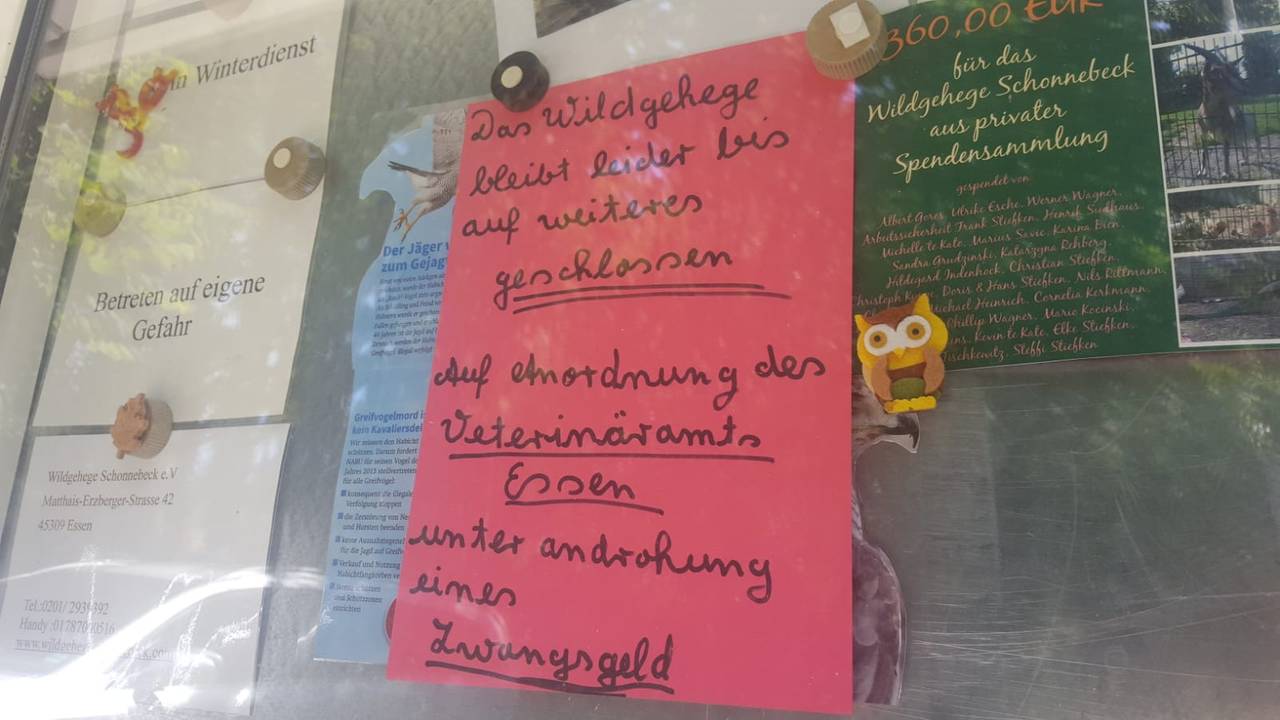 Winterdienst
Betreten auf eigene
Gefahr
Wildgehege Schonnebeck e.V
Matthais-Erzberger-Strasse 42
45309 Essen
Tel.:0201/
Handy
Der Jäger
zum Gejag
Greifvogelmord
kein Kavaliersdel
Wir müssen den Habicht
schützen. Darum fordert
NABU für seinen Vogel de
Jahres 2015 stellvertreten
für alle Greifvögel:
konsequent die illegale
Verfolgung stoppen
die Zerstörung von Ne
und Horsten beenden
keine Ausnahmegeneh
für die Jagd auf Greifv
Verkauf und Nutzung
Habichtfangkörben ve
und Schutzzonen
einrichten
Das Wildgehege
bleibt leider bis
auf weiteres
geschlossen
Auf Anordnung des
Veterinäramts
Essen
unter androhung
eines
Zwangsgeld
360,00 EUR
für das
Wildgehege Schonnebeck
aus privater
Spendensammlung
gespendet von
Albert Gores, Ulrike Esche, Werner Wagner,
Arbeitssicherheit Frank Stiefken, Henrik Südhaus,
Michelle te Kate, Marius Savic, Karina Bien,
Sandra Grudzinski, Katarzyna Rehberg,
Hildegard Indenhock, Christian Stiefken,
Doris & Hans Stiefken, Nils Rittmann,
Michael Heinrich, Cornelia Kerkmann,
Phillip Wagner, Mario Kocinski,
Kevin te Kate, Elke Stiefken,
Tischkewitz, Steffi Stiefken